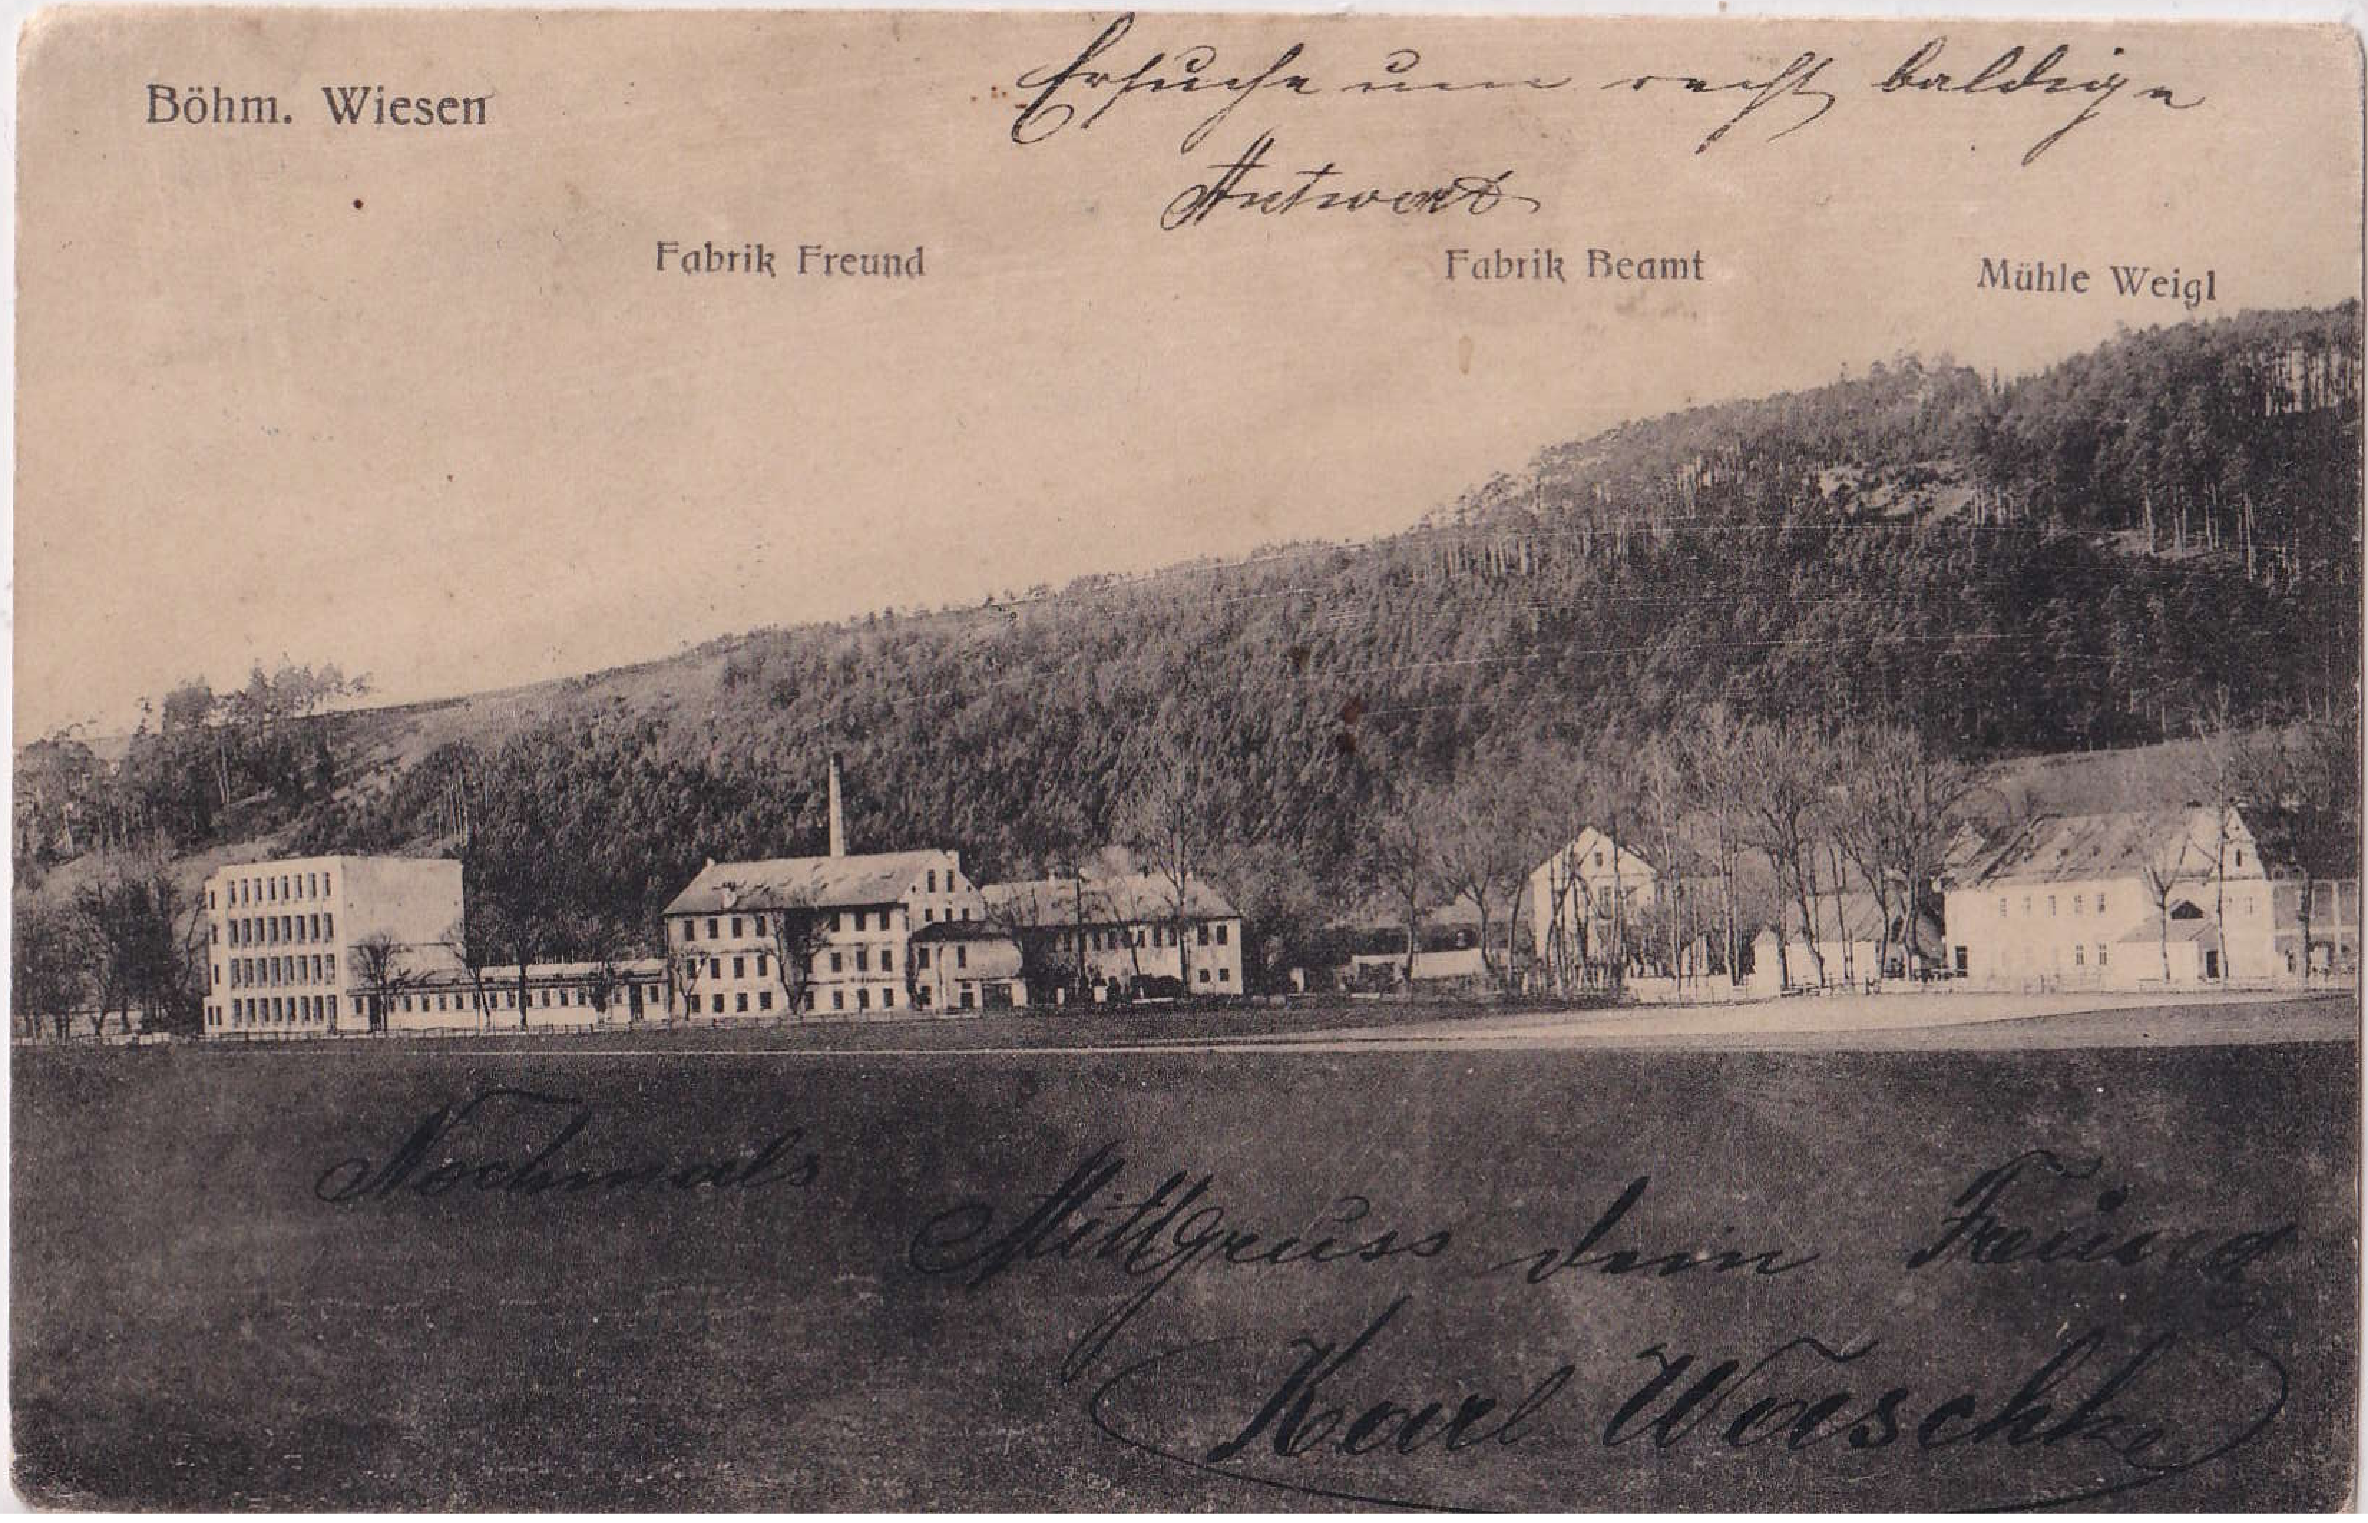 Böhm. Wiesen
Ersuche um recht baldige
Antwort
Fabrik Freund
Fabrik Beamt
Mühle Weigl
Nochmals
dein Freund
Karl Waschke